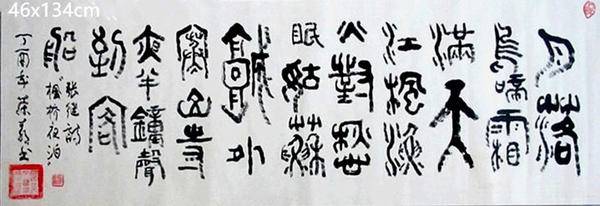 46x134cm
月落
烏啼霜
滿天
江楓漁
火對愁
眠姑蘇
城外
寒山寺
夜半鐘聲
到客
船
張继詩
楓桥夜泊
丁酉年